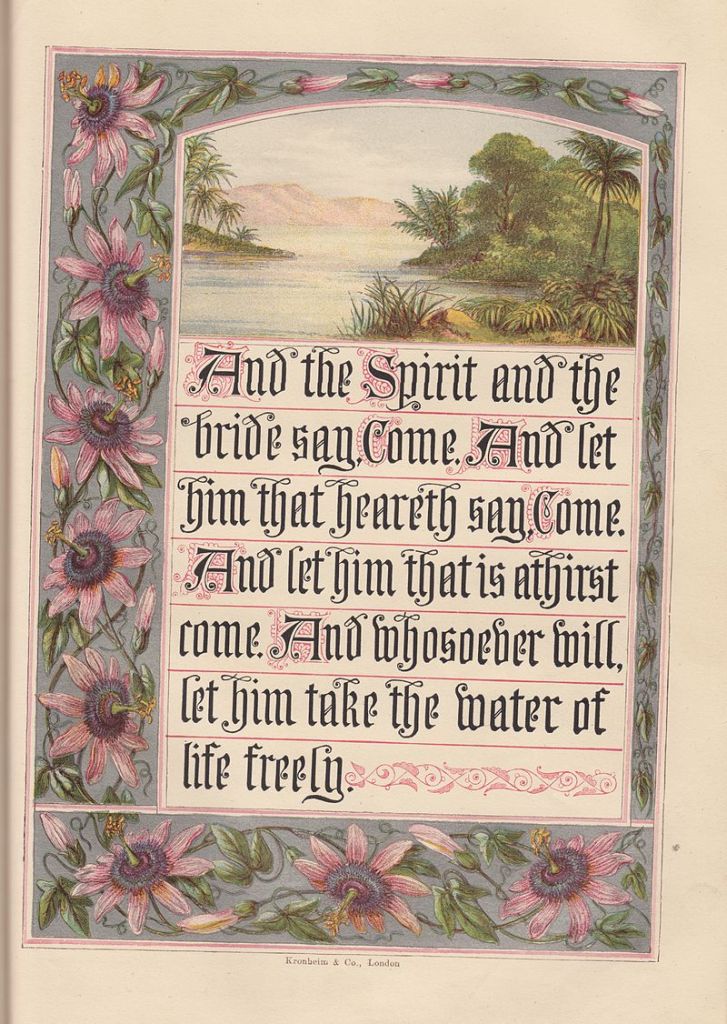 And the Spirit and the
bride say, Come. And let
him that heareth say, Come.
And let him that is athirst
come. And whosoever will,
let him take the water of
life freely.
Kronheim & Co., London